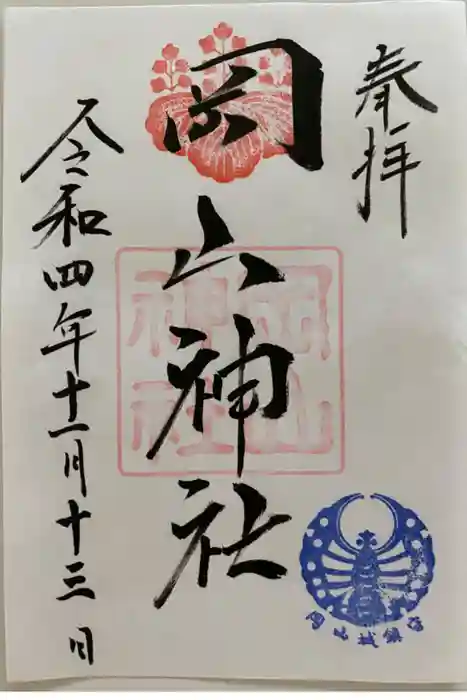 奉拝
岡山神社
岡山神社
岡山城鎮守
令和四年十一月十三日